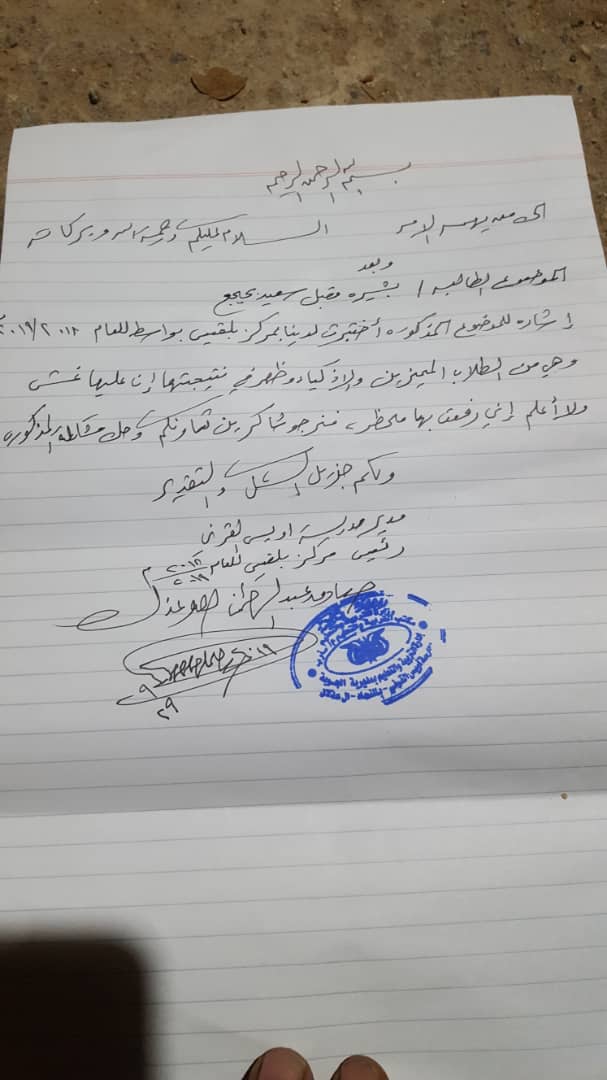 بسم الله الرحمن الرحيم
الى من يهمه الامر السلام عليكم ورحمة الله وبركاته
وبعد
الموضوع الطالبه / بشيره مقبل سعيد
إشاره للموضوع المذكوره أختبرت لدينا بمركز بلقيس بواسط للعام ٢٠١٨/٢٠١٩م
وهي من الطلاب المميزين والاذكياء وظهر في نتيجتها إن عليها غش
ولا أعلم إني رفعت بها محظر، فنرجو شاكرين تعاونكم وحل مشكلة المذكوره
ولكم جزيل الشكر والتقدير
مدير مدرسة اويس لقرني
رئيس مركز بلقيس للعام ٢٠١٨/٢٠١٩م
عبدالرحمن
٢٩/٩